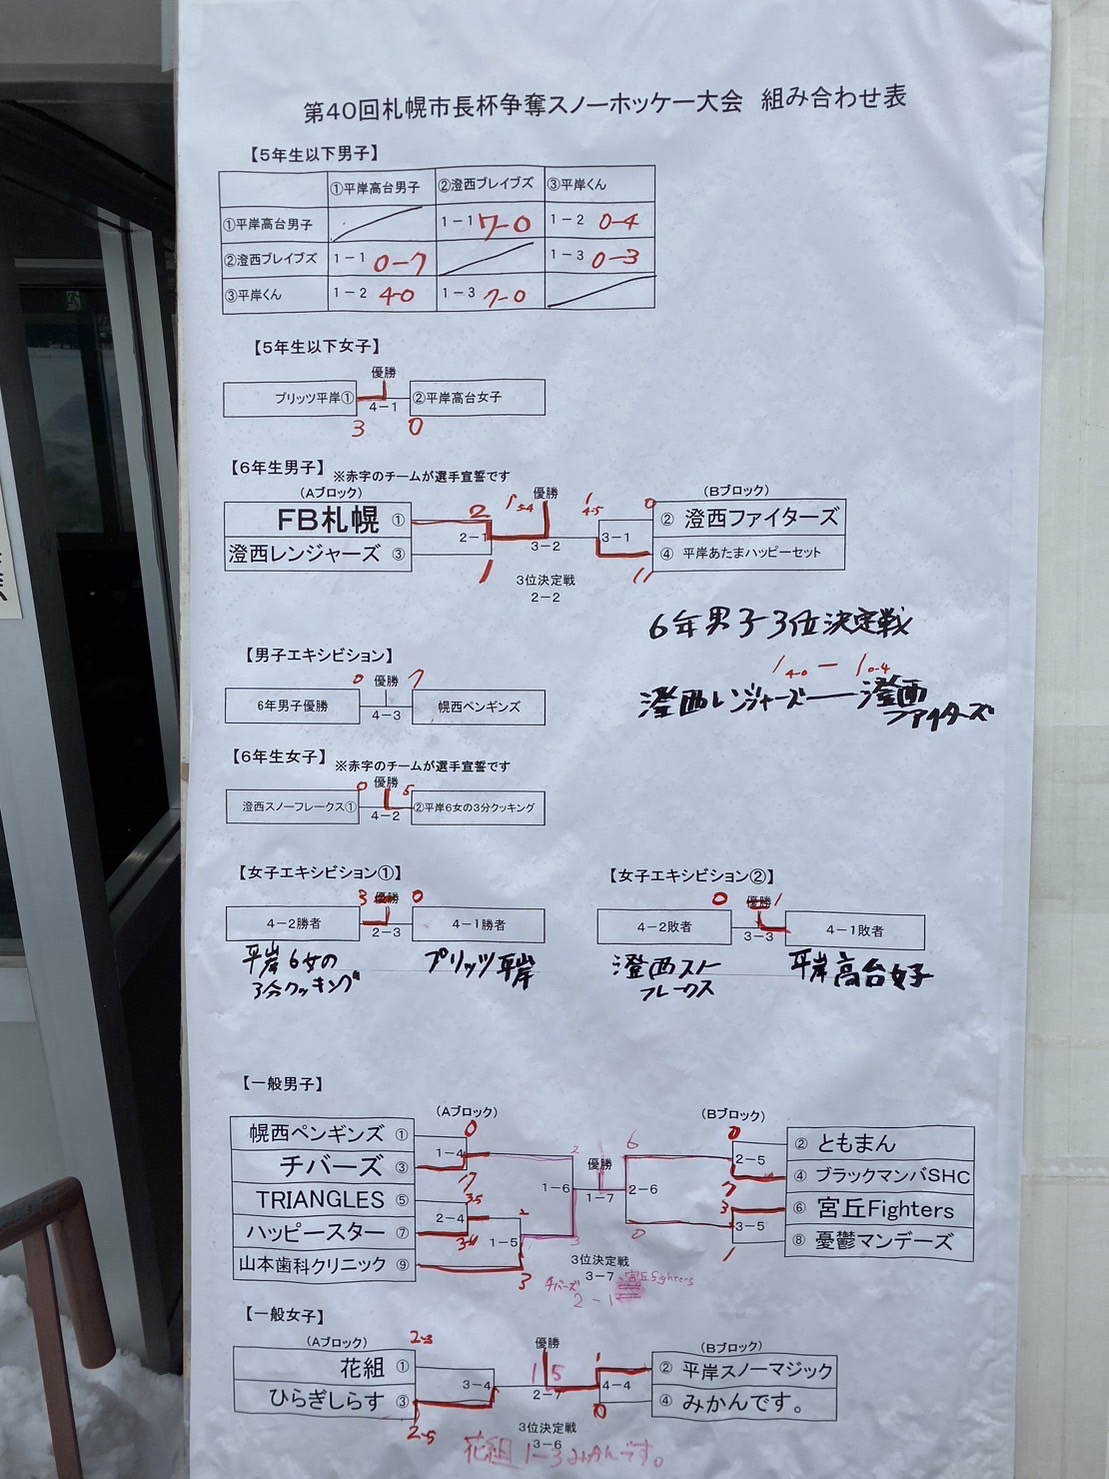 第40回札幌市長杯争奪スノーホッケー大会 組み合わせ表
【5年生以下男子】
①平岸高台男子 ②澄西ブレイブズ ③平岸くん
①平岸高台男子 1-1 7-0 1-2 0-4
②澄西ブレイブズ 1-1 0-7 1-3 0-3
③平岸くん 1-2 4-0 1-3 7-0
【5年生以下女子】
優勝
ブリッツ平岸① 4-1 ②平岸高台女子
3 0
【6年生男子】 ※赤字のチームが選手宣誓です
(Aブロック) 優勝 (Bブロック)
FB札幌 ① 2 1 5-4 1 4-5 0 ② 澄西ファイターズ
2-1 3-2 3-1
澄西レンジャーズ ③ 1 11 ④ 平岸あたまハッピーセット
3位決定戦
2-2
6年男子3位決定戦
1 4-0 ー 1 0-4
澄西レンジャーズ ー 澄西ファイターズ
【男子エキシビション】
0 優勝 7
6年男子優勝 4-3 幌西ペンギンズ
【6年生女子】 ※赤字のチームが選手宣誓です
0 優勝 5
澄西スノーフレークス① 4-2 ②平岸6女の3分クッキング
【女子エキシビション①】 【女子エキシビション②】
3 優勝 0 0 優勝 1
4-2勝者 2-3 4-1勝者 4-2敗者 3-3 4-1敗者
平岸6女の3分クッキング ブリッツ平岸 澄西スノーフレークス 平岸高台女子
【一般男子】
(Aブロック) (Bブロック)
幌西ペンギンズ ① 0 2 優勝 6 0 ② ともまん
1-4 2-5
チバーズ ③ 17 1-6 1-7 2-6 7 ④ ブラックマンバSHC
TRIANGLES ⑤ 3 ⑥ 宮丘Fighters
2-4 2 3-5
ハッピースター ⑦ 1-5 3 0 1 ⑧ 憂鬱マンデーズ
山本歯科クリニック ⑨ 3
3位決定戦
3-7
チバーズ 2-1 宮丘Fighters
【一般女子】
(Aブロック) 2-3 優勝 (Bブロック)
花組 ① 1 5 1 ② 平岸スノーマジック
3-4 2-7 4-4
ひらぎしらす ③ 0 ④ みかんです。
2-5
3位決定戦
3-6
花組 1-3 みかんです。